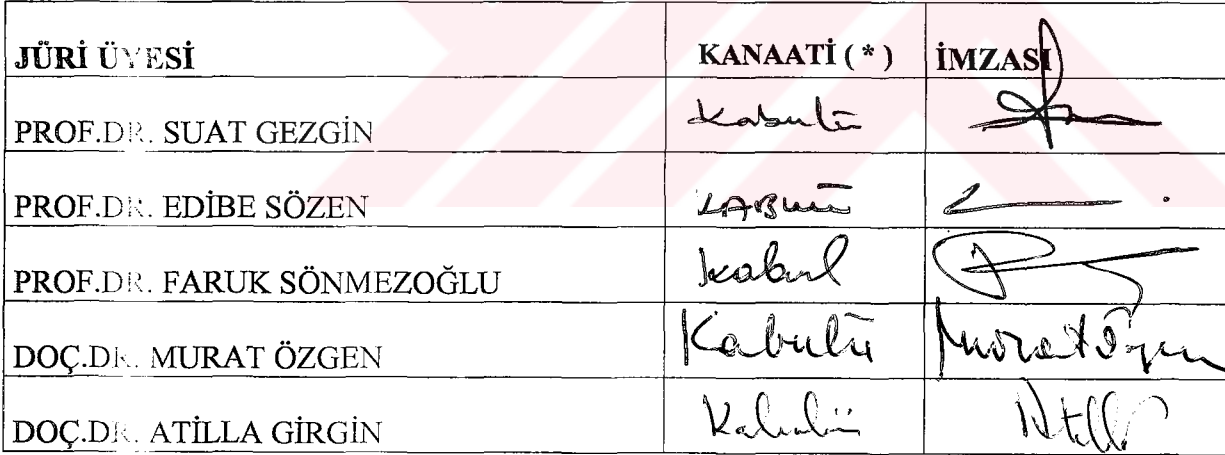 JÜRİ ÜYESİ KANAATİ ( * ) İMZASI
PROF.DR. SUAT GEZGİN Kabulü
PROF.DR. EDİBE SÖZEN KABULÜ
PROF.DR. FARUK SÖNMEZOĞLU kabul
DOÇ.DR. MURAT ÖZGEN Kabulü Murat Özgen
DOÇ.DR. ATİLLA GİRGİN Kabulü Atilla